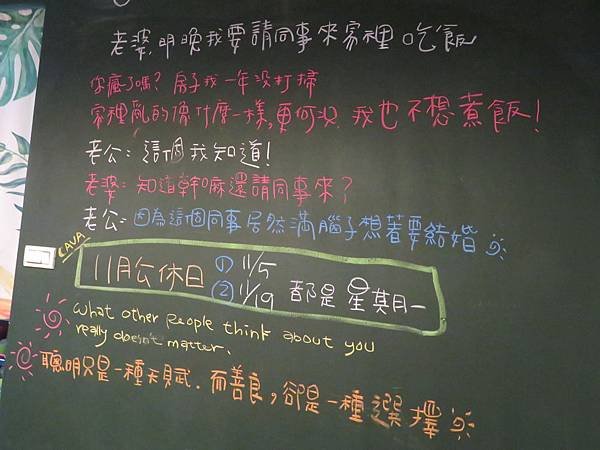 老婆,明晚我要請同事來家裡吃飯
你瘋了嗎?房子我一年沒打掃
家裡亂的像什麼一樣,更何況 我也不想煮飯!
老公:這個我知道!
老婆:知道幹嘛還請同事來?
老公:因為這個同事居然滿腦子想著要結婚
CAVA
11月公休日 ① 11/5
② 11/19 都是星期一
What other people think about you
really doesn't matter.
聰明只是一種天賦.而善良,卻是一種選擇